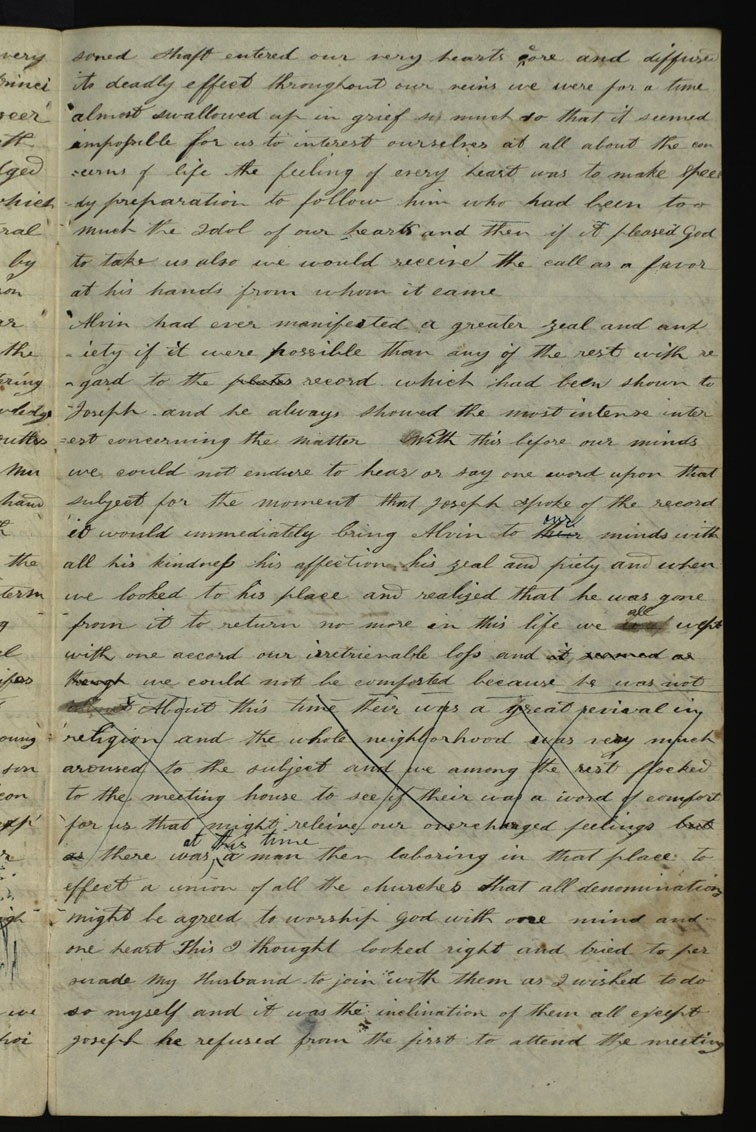 soned shaft entered our very hearts core and diffused
its deadly effect throughout our veins we were for a time
almost swallowed up in grief so much so that it seemed
impossible for us to interest ourselves at all about the con
-cerns of life the feeling of every heart was to make spee
-dy preparation to follow him who had been too
much the Idol of our hearts and then if it pleased God
to take us also we would receive the call as a favor
at his hands from whom it came
Alvin had ever manifested a greater zeal and anx
-iety if it were possible than any of the rest with re
-gard to the plates record which had been shown to
Joseph and he always showed the most intense inter
-est concerning the matter With this before our minds
we could not endure to hear or say one word upon that
subject for the moment that Joseph spoke of the record
it would immediately bring Alvin to their our minds with
all his kindness his affection his zeal and piety and when
we looked to his place and realized that he was gone
from it to return no more in this life we all wept
with one accord our irretrievable loss and it seemed as
though we could not be comforted because he was not
About this time their was a great revival in
religion and the whole neighborhood was very much
aroused to the subject and we among the rest flocked
to the meeting house to see if their was a word of comfort
for us that might releive our overcharged feelings but
as there was at this time a man then laboring in that place to
effect a union of all the churches that all denominations
might be agreed to worship God with one mind and
one heart This I thought looked right and tried to per
suade My Husband to join with them as I wished to do
so myself and it was the inclination of them all except
Joseph he refused from the first to attend the meeting